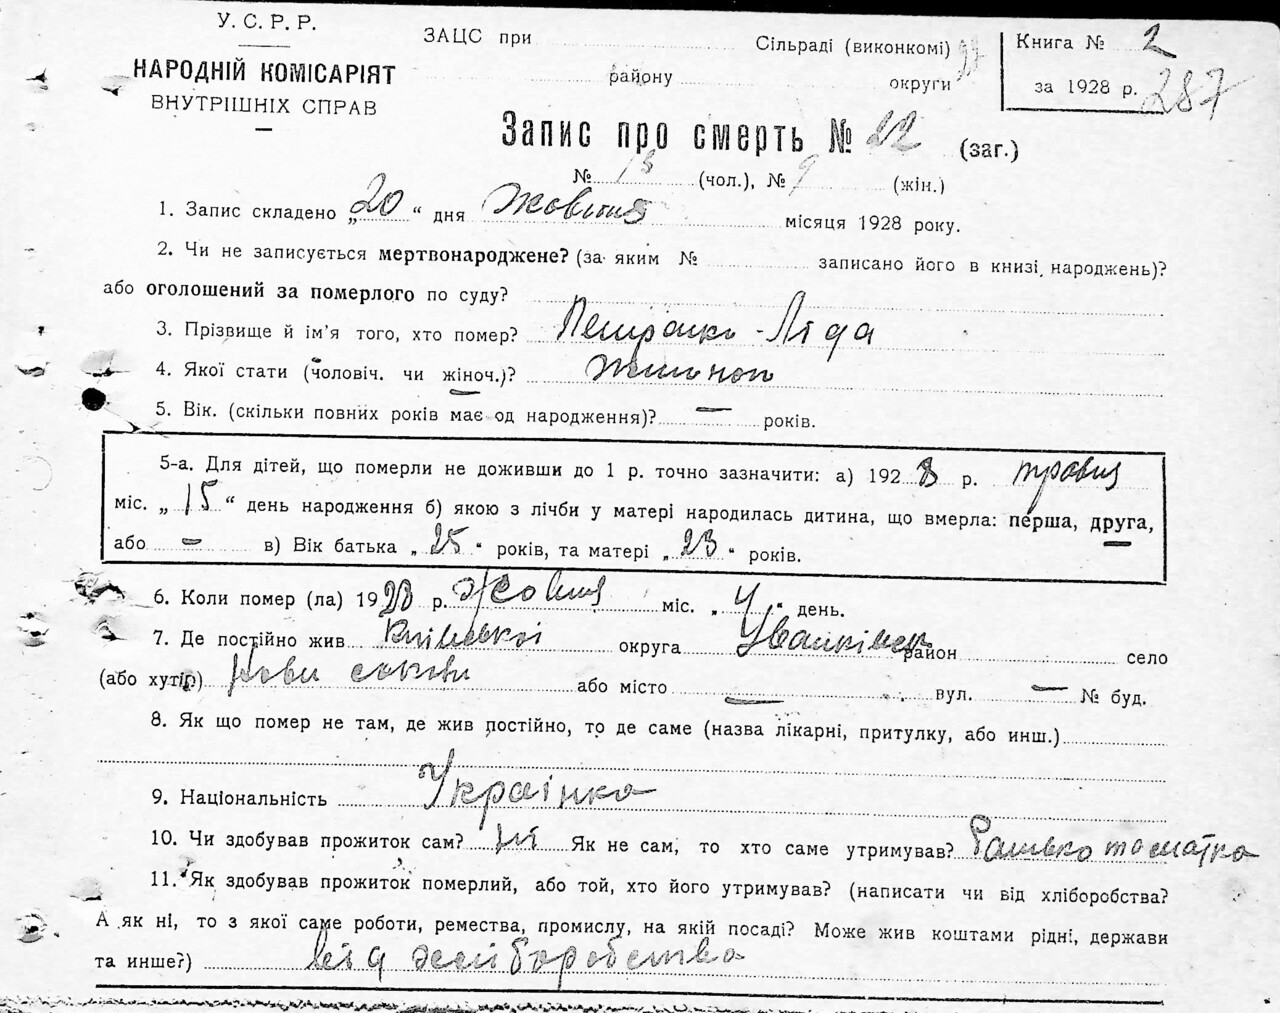 У.С.Р.Р.
НАРОДНІЙ КОМІСАРІЯТ
ВНУТРІШНІХ СПРАВ
ЗАЦС при Сільраді (виконкомі)
району округи
Книга № 2
за 1928 р. 287
Запис про смерть № 22 (заг.)
№ 13 (чол.), № 9 (жін.)
1. Запис складено „20“ дня Жовтня місяця 1928 року.
2. Чи не записується мертвонароджене? (за яким № записано його в книзі народжень)?
або оголошений за померлого по суду?
3. Прізвище й ім'я того, хто помер? Петренко - Ліда
4. Якої стати (чоловіч. чи жіноч.)? жіночої
5. Вік. (скільки повних років має од народження)? — років.
5-а. Для дітей, що померли не доживши до 1 р. точно зазначити: а) 1928 р. травня
міс. „15“ день народження б) якою з лічби у матері народилась дитина, що вмерла: перша, друга,
або — в) Вік батька „25“ років, та матері „23“ років.
6. Коли помер (ла) 1928 р. Жовтня міс. „4“ день.
7. Де постійно жив Київської округа район село
(або хутір) Нові або місто — вул. — № буд.
8. Як що помер не там, де жив постійно, то де саме (назва лікарні, притулку, або инш.)
9. Національність Українка
10. Чи здобував прожиток сам? ні Як не сам, то хто саме утримував? Батько та матка
11. Як здобував прожиток померлий, або той, хто його утримував? (написати чи від хліборобства?
А як ні, то з якої саме роботи, ремества, промислу, на якій посаді? Може жив коштами рідні, держави
та инше?) від хліборобства